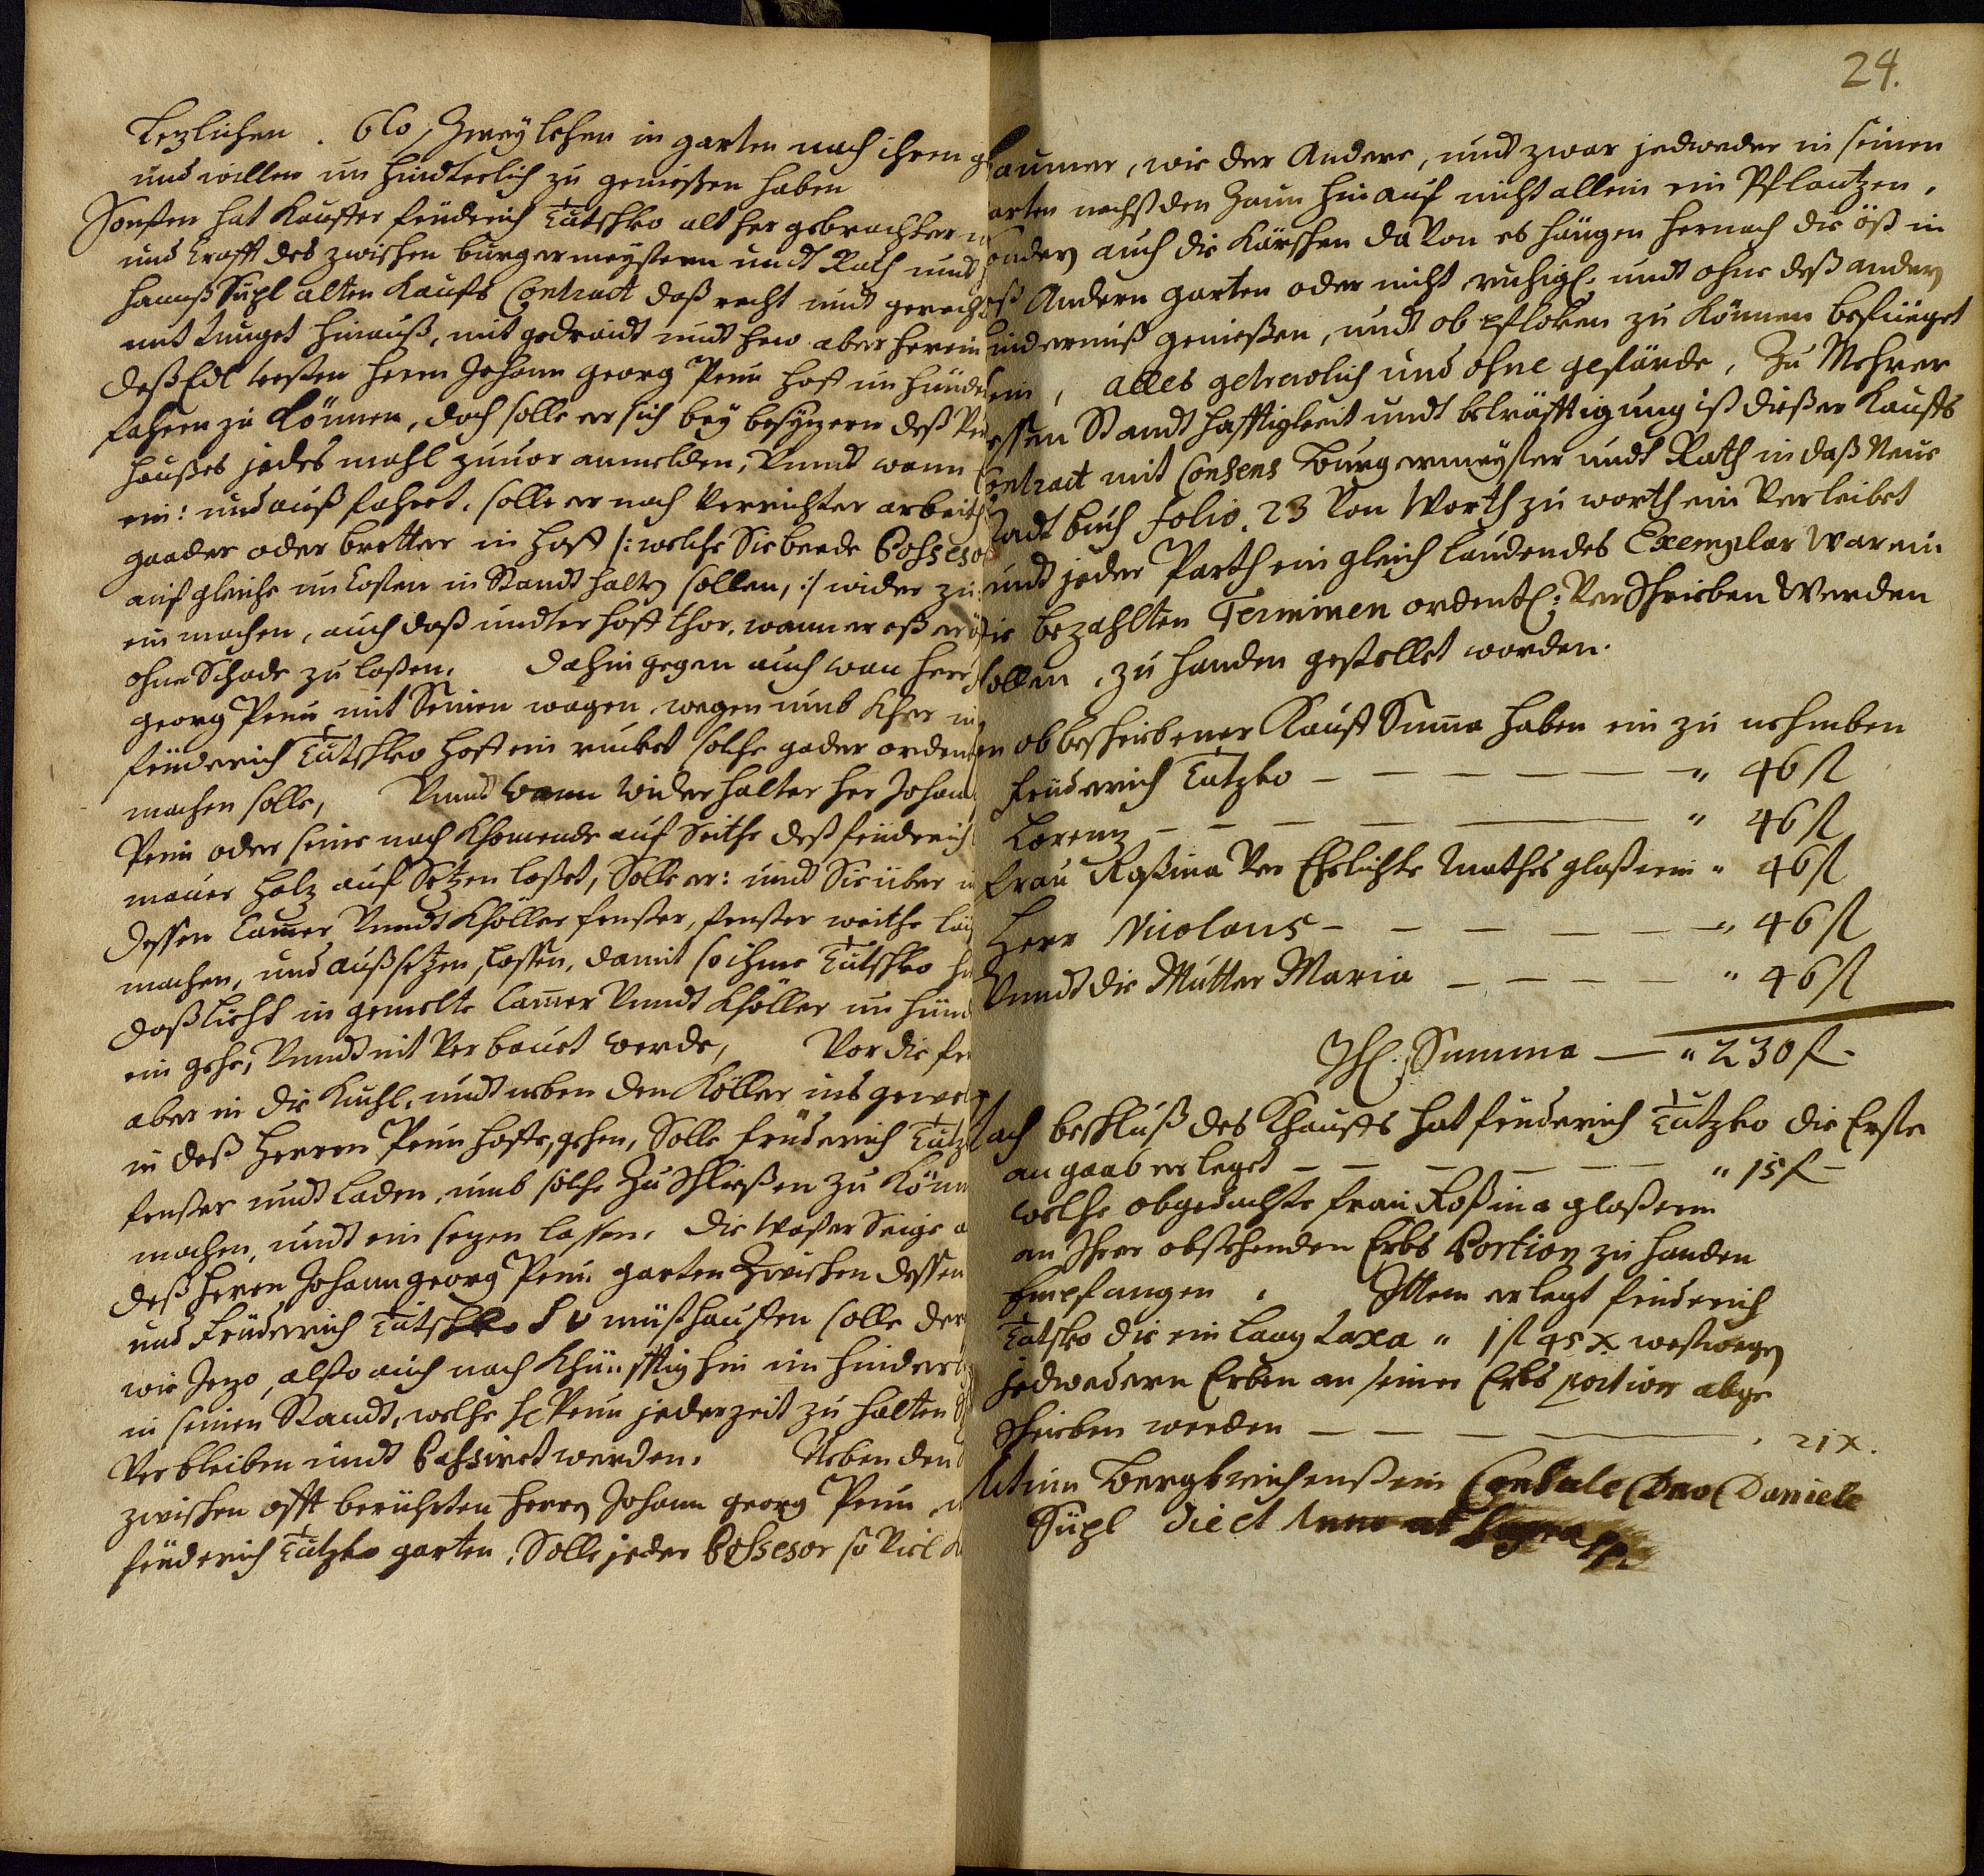 Letzlichen . 6to, Zwey lehen in garten nach ihrem
und willen un hindterlich zu genießen haben
Sonsten hat Kauffer friderich Tutschko alt her gebrachter
und krafft des zwischen burgermeystern undt Rath undt
hannß Süpl alten Kaufs Contract daß recht undt gerecht
mit tunget hinauß, mit gedraidt undt hew aber herein
deß Edl vesten herrn Johann georg Penn hoff un hinder
fahren zu können, doch solle er sich bey besytzern deß
haußes jedes mahl zuuor anmelden, Vnndt wann
ein: und auß fahret, solle er nach Verrichter arbeith
gaader oder bretter in hoff /: welche Sie beede Possesor
auf gleiche un kosten in Standt halten sollen, :/ wider zu
ein machen, auch daß undter hoff thor, wann er eß
ohne Schade zu loßen. Dahin gegen auch wan herr
georg Penn mit Seinen wagen wegen umb Kher in
friderich Tutschko hoff ein rucket solche gader orden
machen solle, Vnnd wann wider halter her Johann
Penn oder seine nach Khomende auf Seithe deß friderich
mauer holz auf Setzen loßet, Solle er: undt Sie über
dessen Camer Vnndt Khöller fenster, fenster weithe
machen, und außsetzen, lassen, damit so ihme Tutschko
daß licht in gemelte Camer Vnndt Khöller un hind
ein gehe, Vnndt nit Verbauet werde, Vor die
aber in die Kuchl, undt neben den Köller ins
in deß herren Penn hoffe, gehen, Solle friderich Tutz
fenster undt laden, umb solche Zu Schließen zu Könn
machen, undt ein sezen lassen. die Waßer Seige
deß herrn Johann georg Penn garten Zwischen dessen
und friderich Tutschko S V müsthauffen solle
wie Jezo, alßo auch nach Khünfftig hin un hinder
in seinen Standt, welche H Penn jederzeit zu halten
Verbleiben undt Possiret werden. Neben den
zwischen offt berührten herrn Johann georg Penn
friderich Tutzko garten, Solle jeder Possesor so Viel
24.
aumer, wie der Andere, undt zwar jedweder in seinen
arten nechst den Zaun hinauf nicht allein ein Pflantzen,
ondern auch die Kärschen da Von es hängen hernach die öß in
eß Andern garten oder nicht ruhigl. undt ohne deß andern
inderniß genießen, undt ob pfloken zu Können befüeget
ein, alles getrewlich und ohne gefärde, Zu Mehrer
essen Standthafftigkeit undt bekräfftigung ist dießer Kaufs
Contract mit Consens Burgermeyster undt Rath in daß Neue
tadt buch folio. 23 Von Worth zu worth ein Verleibet
undt jeder Parth ein gleich laudendes Exemplar Warein
ie bezahlten Terminen ordentl: Verschrieben Werden
sollen, zu handen gestellet worden.
en ob beschriebener Kauff Suma haben ein zu nehmben
friderich Tutzko — — — — — — " 46 fl
Lorenz — — — — — " 46 fl
frau Roßina Ver Ehelichte Mathes glaßerin " 46 fl
Herr Nicolaus — — — — — — " 46 fl
Vnndt die Mutter Maria — — — — " 46 fl
Thl. Summa — " 230 f.
Nach beschluß des Khauffs hat friderich Tutzko die Erste
an gaab erleget — — — — — — " 15 f —
welche obgedachte frau Roßina glaßerin
an Ihrer obstehenden Erbs Portion zu handen
Empfangen. Ittem erlegt friderich
Tutsko die ein laag Taxa " 1 fl 45 x weßwegen
jedwedern Erben an seiner Erbs portion abge
schrieben werden — — — — 21 x.
Actum Bergkreichenstein Consule Dno Daniele
Süpl die et Anno ut Supra